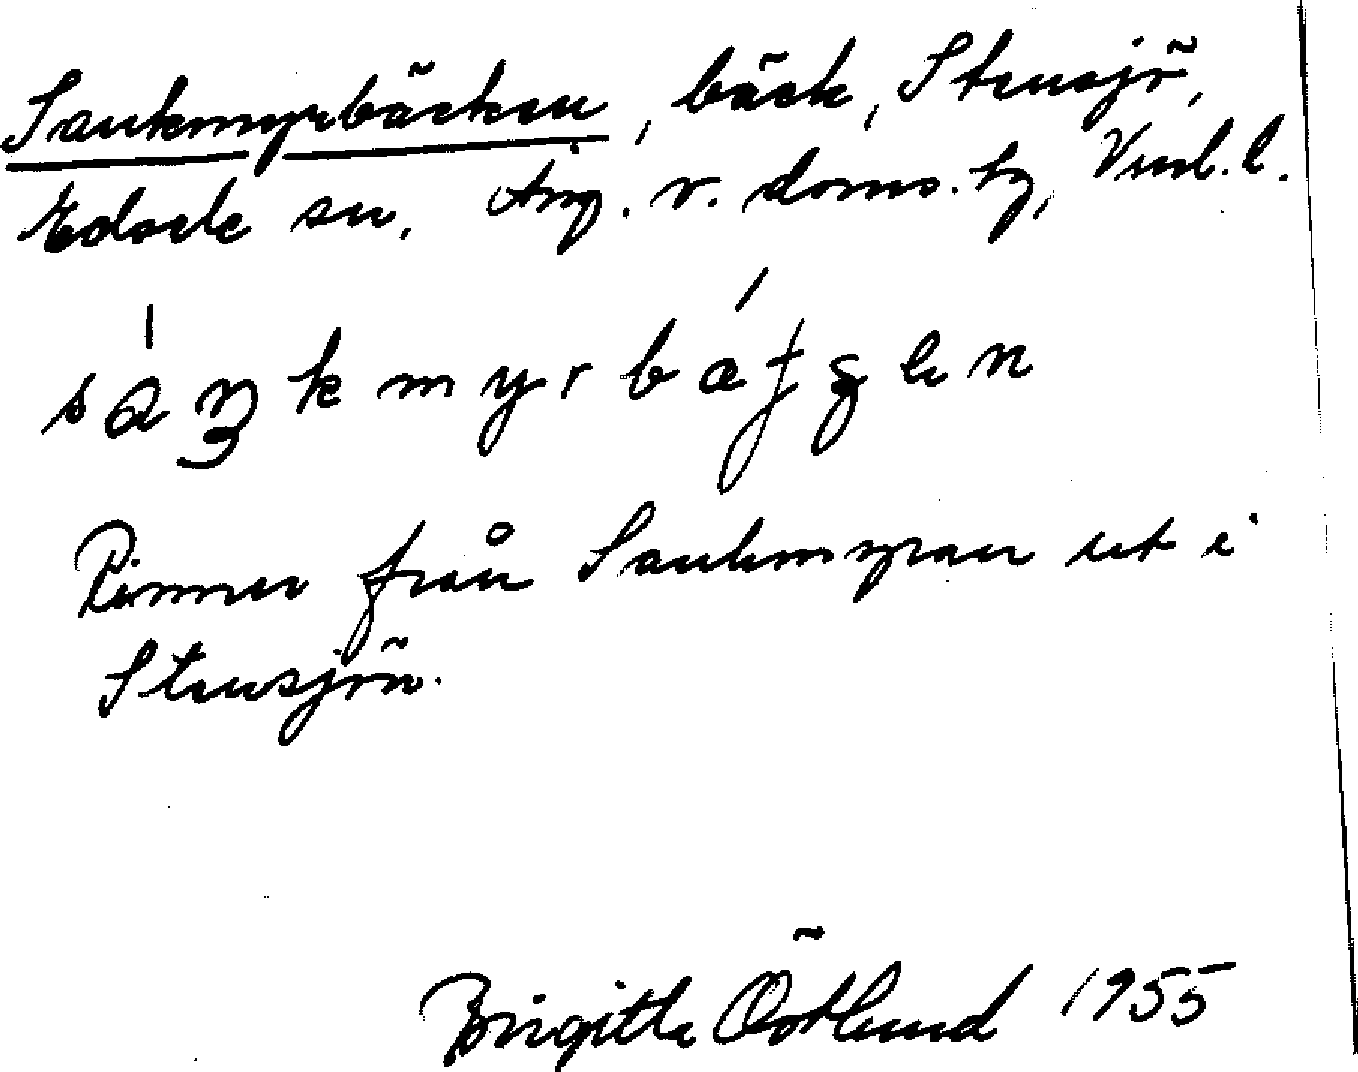 Sankmyrbäcken, bäck, Stensjö,
Edsele sn, Ång. v. doms. tg, Vnl. l.
Rinner från Sankmyran ut i
Stensjön.
Birgitta Östlund 1955